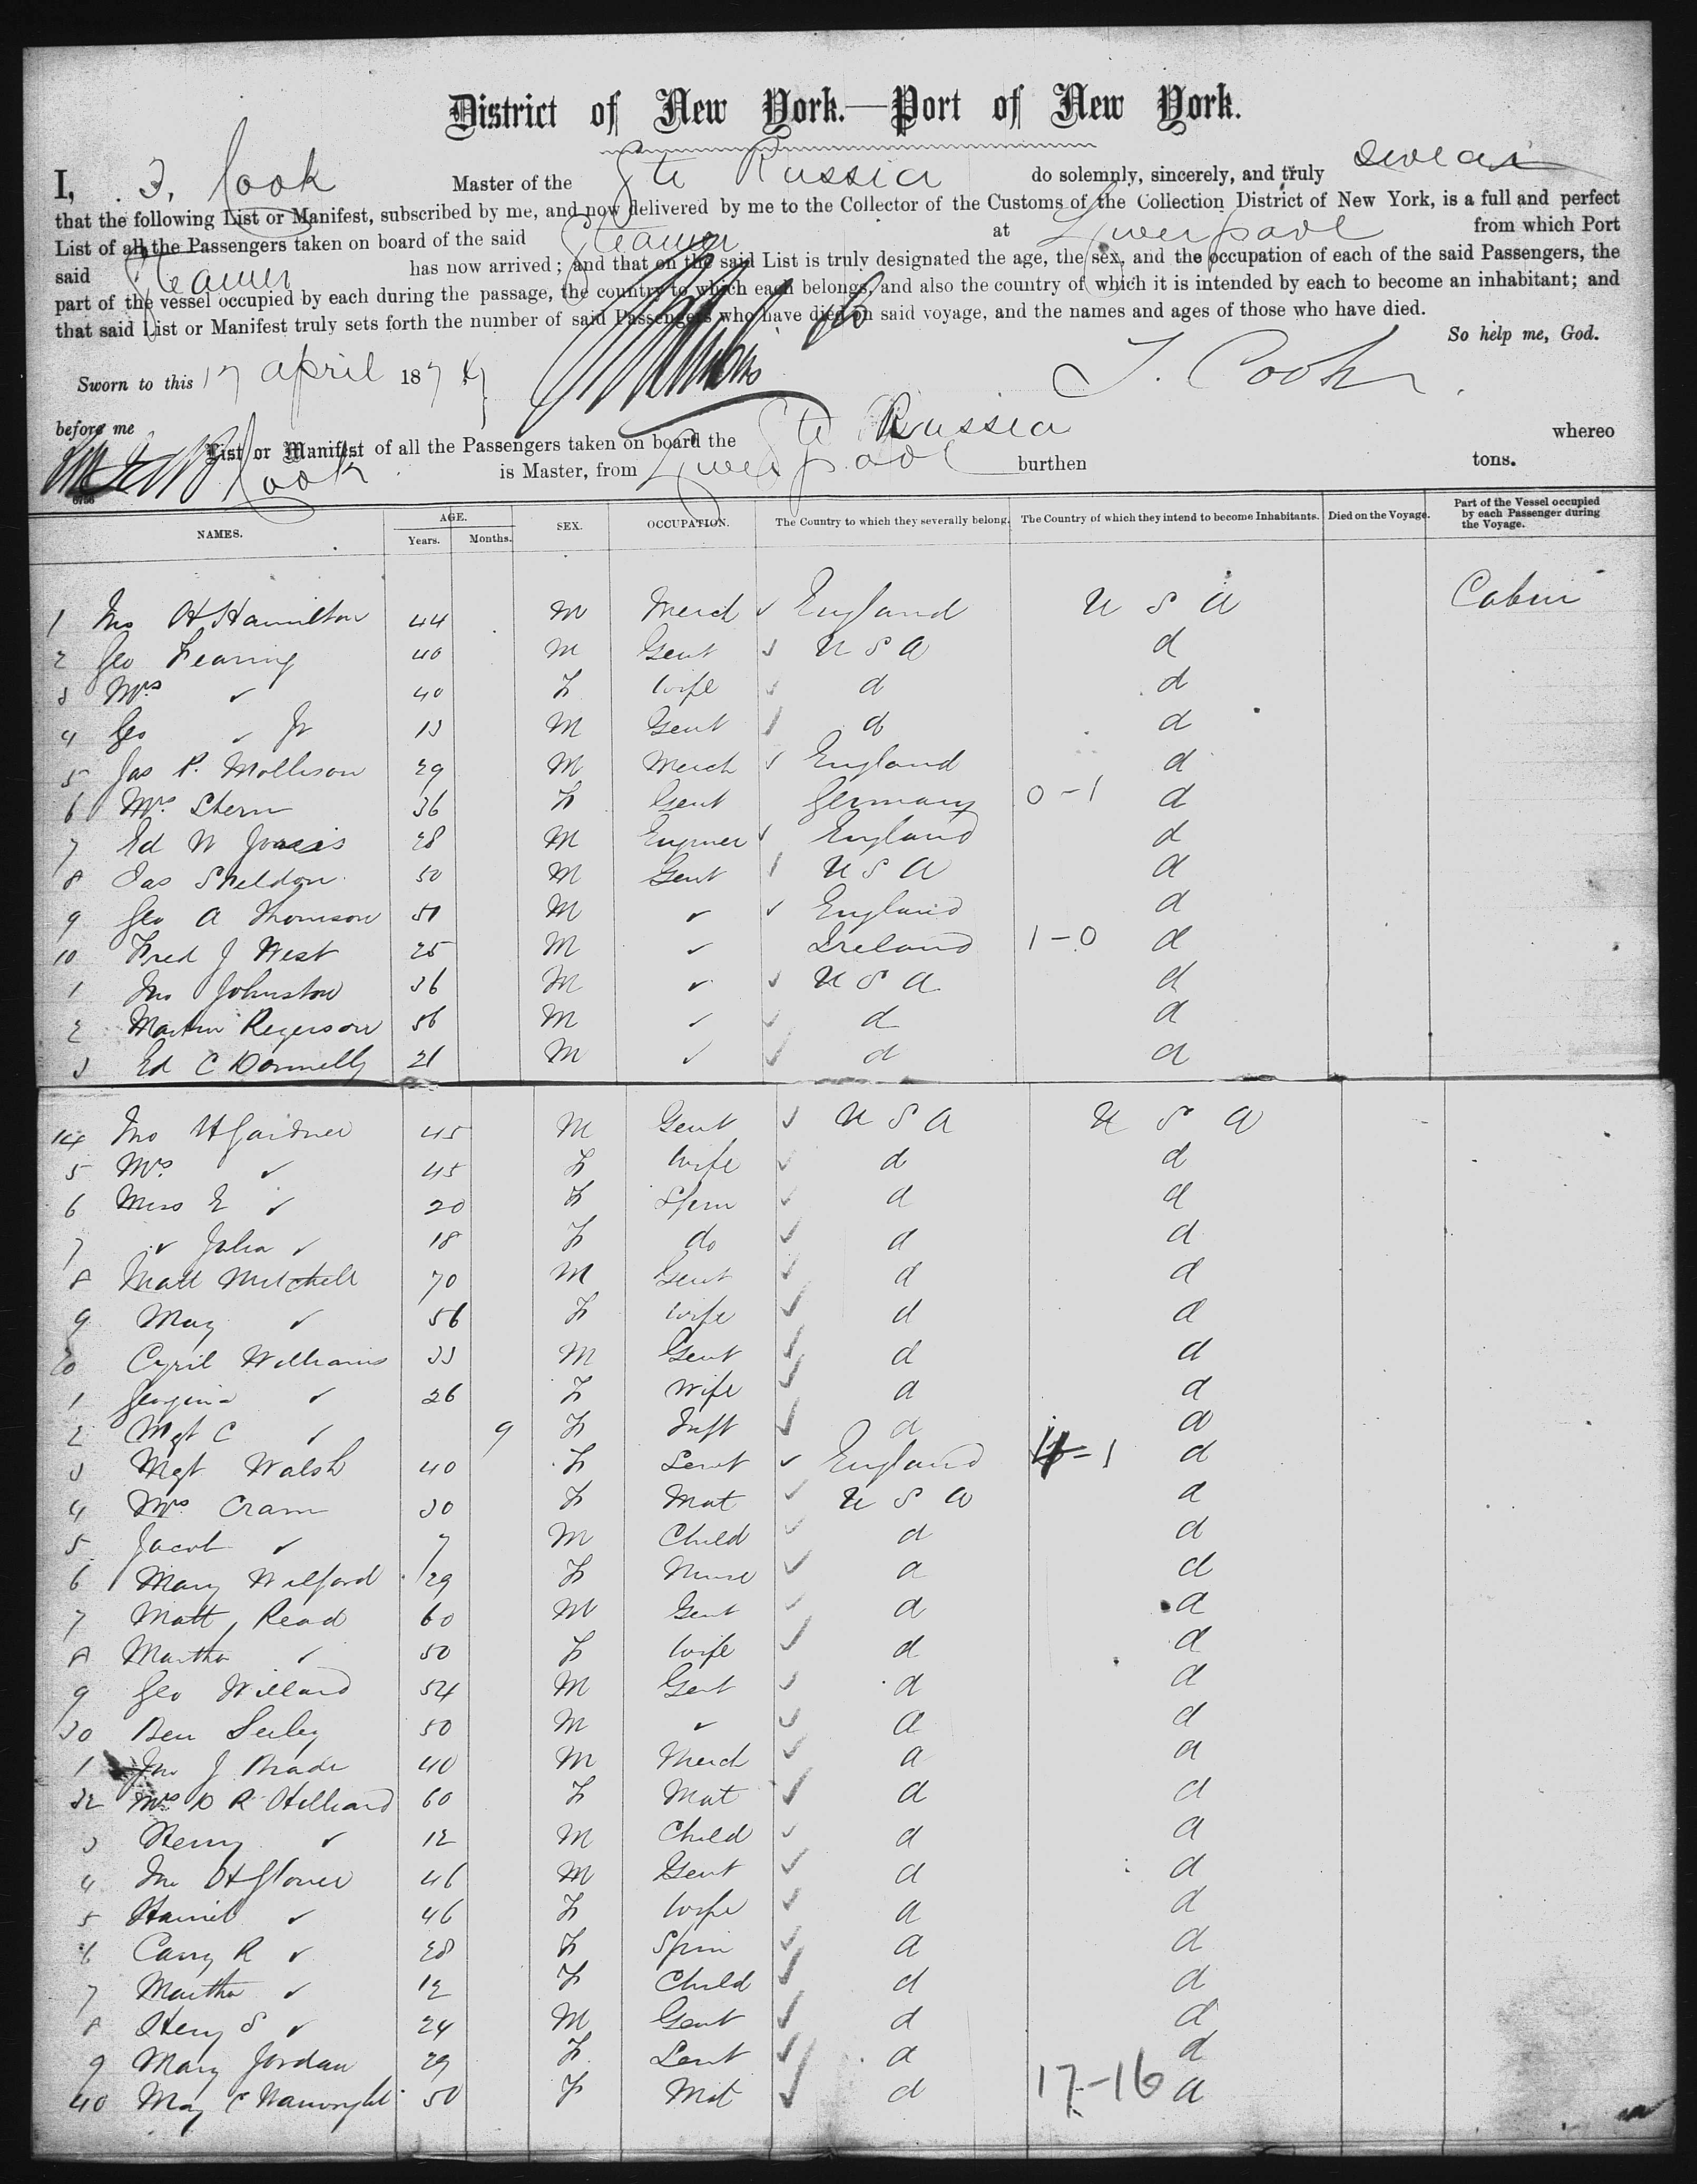 District of New York.—Port of New York.
I, J. Cook Master of the Str Russia do solemnly, sincerely, and truly swear
that the following List or Manifest, subscribed by me, and now delivered by me to the Collector of the Customs of the Collection District of New York, is a full and perfect
List of all the Passengers taken on board of the said Steamer at Liverpool from which Port
said Steamer has now arrived; and that on the said List is truly designated the age, the sex, and the occupation of each of the said Passengers, the
part of the vessel occupied by each during the passage, the country to which each belongs, and also the country of which it is intended by each to become an inhabitant; and
that said List or Manifest truly sets forth the number of said Passengers who have died on said voyage, and the names and ages of those who have died.
So help me, God.
Sworn to this 17 April 187 T. Cook
before me
List or Manifest of all the Passengers taken on board the Str Russia whereo
Cook is Master, from Liverpool burthen tons.
6756
NAMES. AGE. Years. Months. SEX. OCCUPATION. The Country to which they severally belong. The Country of which they intend to become Inhabitants. Died on the Voyage. Part of the Vessel occupied by each Passenger during the Voyage.
1 Jno H Hamilton 44 M Merch ✓ England U S A Cabin
2 Geo Fearing 40 M Gent ✓ U S A d
3 Mrs ✓ 40 F Wife ✓ d d
4 Geo ✓ Jr 13 M Gent ✓ d d
5 Jas P. Mollison 29 M Merch ✓ England d
6 Mrs Stern 36 F Gent Germany 0-1 d
7 Ed W 28 M Engineer ✓ England d
8 Jas Sheldon 50 M Gent ✓ U S A d
9 Geo A Thomson 51 M ✓ ✓ England d
10 Fred J West 25 M ✓ Ireland 1-0 d
1 Jno Johnston 36 M ✓ ✓ U S A d
2 Martin Regerson 56 M ✓ ✓ d d
3 Ed C Donnelly 21 M ✓ ✓ d d
14 Jno H Gardner 45 M Gent ✓ U S A U S A
5 Mrs ✓ 45 F Wife ✓ d d
6 Miss E ✓ 20 F Spin ✓ d d
7 ✓ Julia ✓ 18 F do ✓ d d
8 Matt Mitchell 70 M Gent ✓ d d
9 May ✓ 56 F Wife ✓ d d
20 Cyril Williams 33 M Gent ✓ d d
1 Georgina ✓ 26 F Wife ✓ d d
2 Mgt C ✓ 9 F Inft ✓ d d
3 Mgt Walsh 40 F Servt ✓ England -1 d
4 Mrs Cram 30 F Mat ✓ U S A d
5 Jacob ✓ 7 M Child ✓ d d
6 Mary Wilford 29 F Nurse ✓ d d
7 Matt Read 60 M Gent ✓ d d
8 Martha ✓ 50 F Wife ✓ d d
9 Geo Willard 54 M Gent ✓ d d
30 Ben Seeley 50 M ✓ ✓ d d
1 Jno J 40 M Merch ✓ d d
32 Mrs D R Hilliard 60 F Mat ✓ d d
3 Henry ✓ 12 M Child ✓ d d
4 Jno H Glover 46 M Gent ✓ d d
5 Harriet ✓ 46 F Wife ✓ d d
6 Carry R ✓ 28 F Spin ✓ d d
7 Martha ✓ 12 F Child ✓ d d
8 Henry S ✓ 24 M Gent ✓ d d
9 Mary Jordan 29 F Servt ✓ d d
40 May C 50 F Mat ✓ d 17-16 d